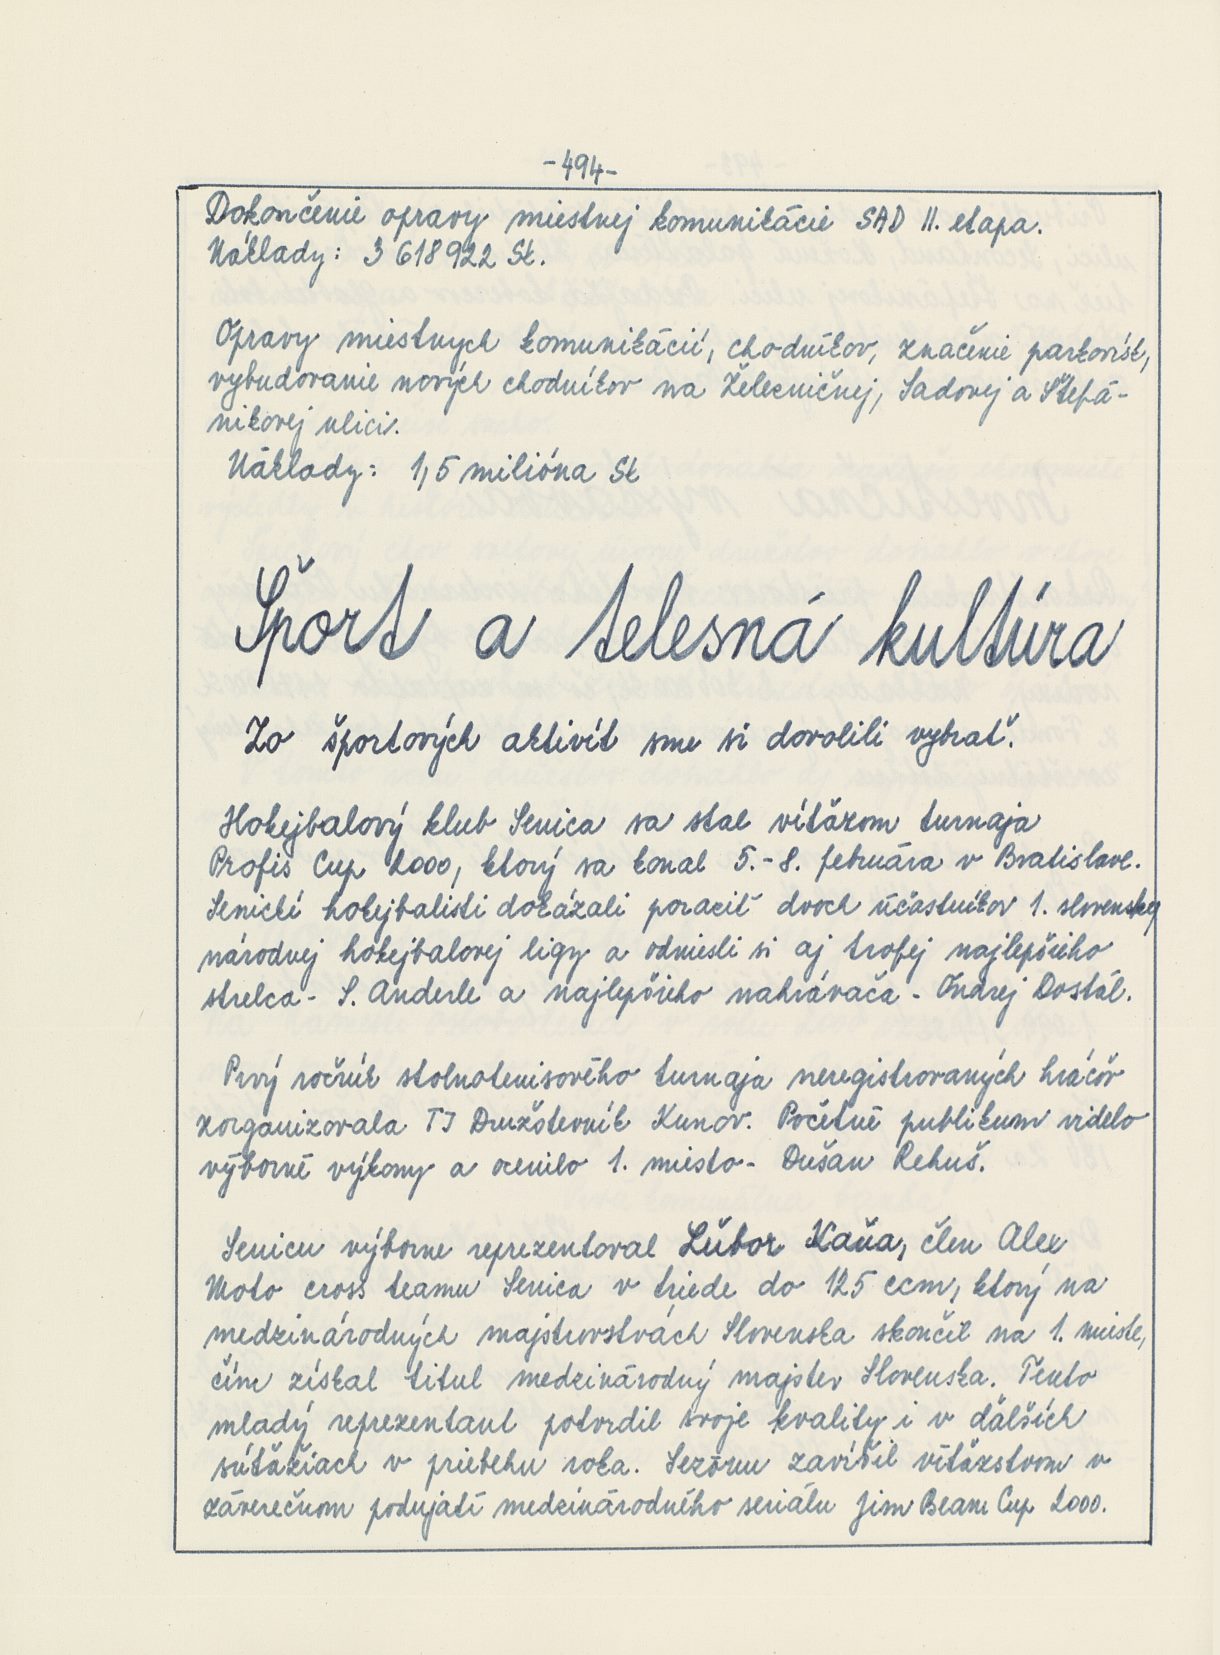 -494-
Dokončenie opravy miestnej komunikácie SAD II. etapa.
Náklady: 3 618 922 Sk.
Opravy miestnych komunikácií, chodníkov, značenie parkovísk,
vybudovanie nových chodníkov na Železničnej, Sadovej a Štefá-
nikovej ulici.
Náklady: 1,5 milióna Sk
Šport a telesná kultúra
Zo športových aktivít sme si dovolili vybrať.
Hokejbalový klub Senica sa stal víťazom turnaja
Profis Cup 2000, ktorý sa konal 5.-8. februára v Bratislave.
Senickí hokejbalisti dokázali poraziť dvoch účastníkov 1. slovenskej
národnej hokejbalovej ligy a odniesli si aj trofej najlepšieho
strelca - S. Anderle a najlepšieho nahrávača - Ondrej Dostál.
Prvý ročník stolnotenisového turnaja neregistrovaných hráčov
zorganizovala TJ Družstevník Kunov. Početné publikum videlo
výborné výkony a ocenilo 1. miesto - Dušan Rehuš.
Senicu výborne reprezentoval Ľubor Kaňa, člen Alex
Moto cross teamu Senica v triede do 125 ccm, ktorý na
medzinárodných majstrovstvách Slovenska skončil na 1. mieste,
čím získal titul medzinárodný majster Slovenska. Tento
mladý reprezentant potvrdil svoje kvality i v ďalších
súťažiach v priebehu roka. Sezónu zavŕšil víťazstvom v
záverečnom podujatí medzinárodného seriálu Jim Beam Cup 2000.